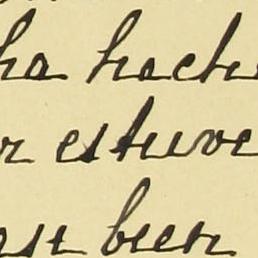 ha hech
r estuve
bien